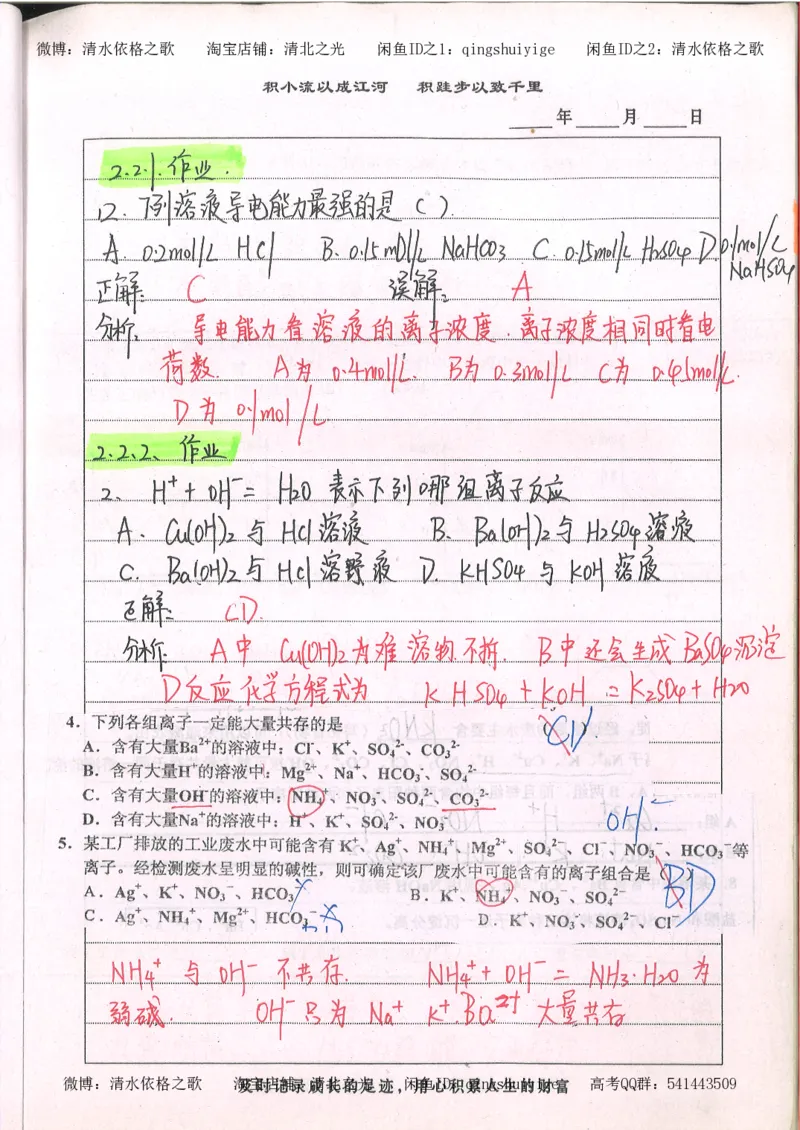 微博：清水依格之歌　淘宝店铺：清北之光　闲鱼ID之1：qingshuiyige　闲鱼ID之2：清水依格之歌
积小流以成江河　积跬步以致千里
年　月　日
2.2.1.作业.
12. 下列溶液导电能力最强的是 ( ).
A. 0.2mol/L HCl　B. 0.15mol/L NaHCO3　C. 0.15mol/L H2SO4　D. 0.1mol/L NaHSO4
正解: C　误解: A
分析: 导电能力看溶液的离子浓度. 离子浓度相同时看电
荷数. A为 0.4mol/L. B为 0.3mol/L C为 0.45mol/L.
D为 0.1mol/L
2.2.2、作业
2、H⁺+OH⁻= H2O 表示下列哪组离子反应
A. Cu(OH)2与 HCl溶液　B. Ba(OH)2与 H2SO4溶液
C. Ba(OH)2与 HCl溶液　D. KHSO4 与 KOH 溶液
正解: CD.
分析: A中 Cu(OH)2为难溶物.不拆. B中还会生成 BaSO4沉淀
D反应化学方程式为 KHSO4+KOH = K2SO4+H2O
4．下列各组离子一定能大量共存的是 ( ) C D
A．含有大量Ba²⁺的溶液中：Cl⁻、K⁺、SO₄²⁻、CO₃²⁻
B．含有大量H⁺的溶液中：Mg²⁺、Na⁺、HCO₃⁻、SO₄²⁻
C．含有大量OH⁻的溶液中：NH₄⁺、NO₃⁻、SO₄²⁻、CO₃²⁻
D．含有大量Na⁺的溶液中：H⁺、K⁺、SO₄²⁻、NO₃⁻　OH⁻.
5．某工厂排放的工业废水中可能含有 K⁺、Ag⁺、NH₄⁺、Mg²⁺、SO₄²⁻、Cl⁻、NO₃⁻、HCO₃⁻等
离子。经检测废水呈明显的碱性，则可确定该厂废水中可能含有的离子组合是 ( ) B D
A．Ag⁺、K⁺、NO₃⁻、HCO₃⁻　B．K⁺、NH₄⁺、NO₃⁻、SO₄²⁻
C．Ag⁺、NH₄⁺、Mg²⁺、HCO₃⁻　D．K⁺、NO₃⁻、SO₄²⁻、Cl⁻
NH4⁺ 与 OH⁻ 不共存. NH4⁺+OH⁻ = NH3·H2O 为
弱碱. OH⁻只为 Na⁺ K⁺.Ba²⁺ 大量共存
及时记录成长的足迹，用心积累人生的财富
微博：清水依格之歌　淘宝店铺：清北之光　闲鱼ID：qingshuiyige　高考QQ群：541443509